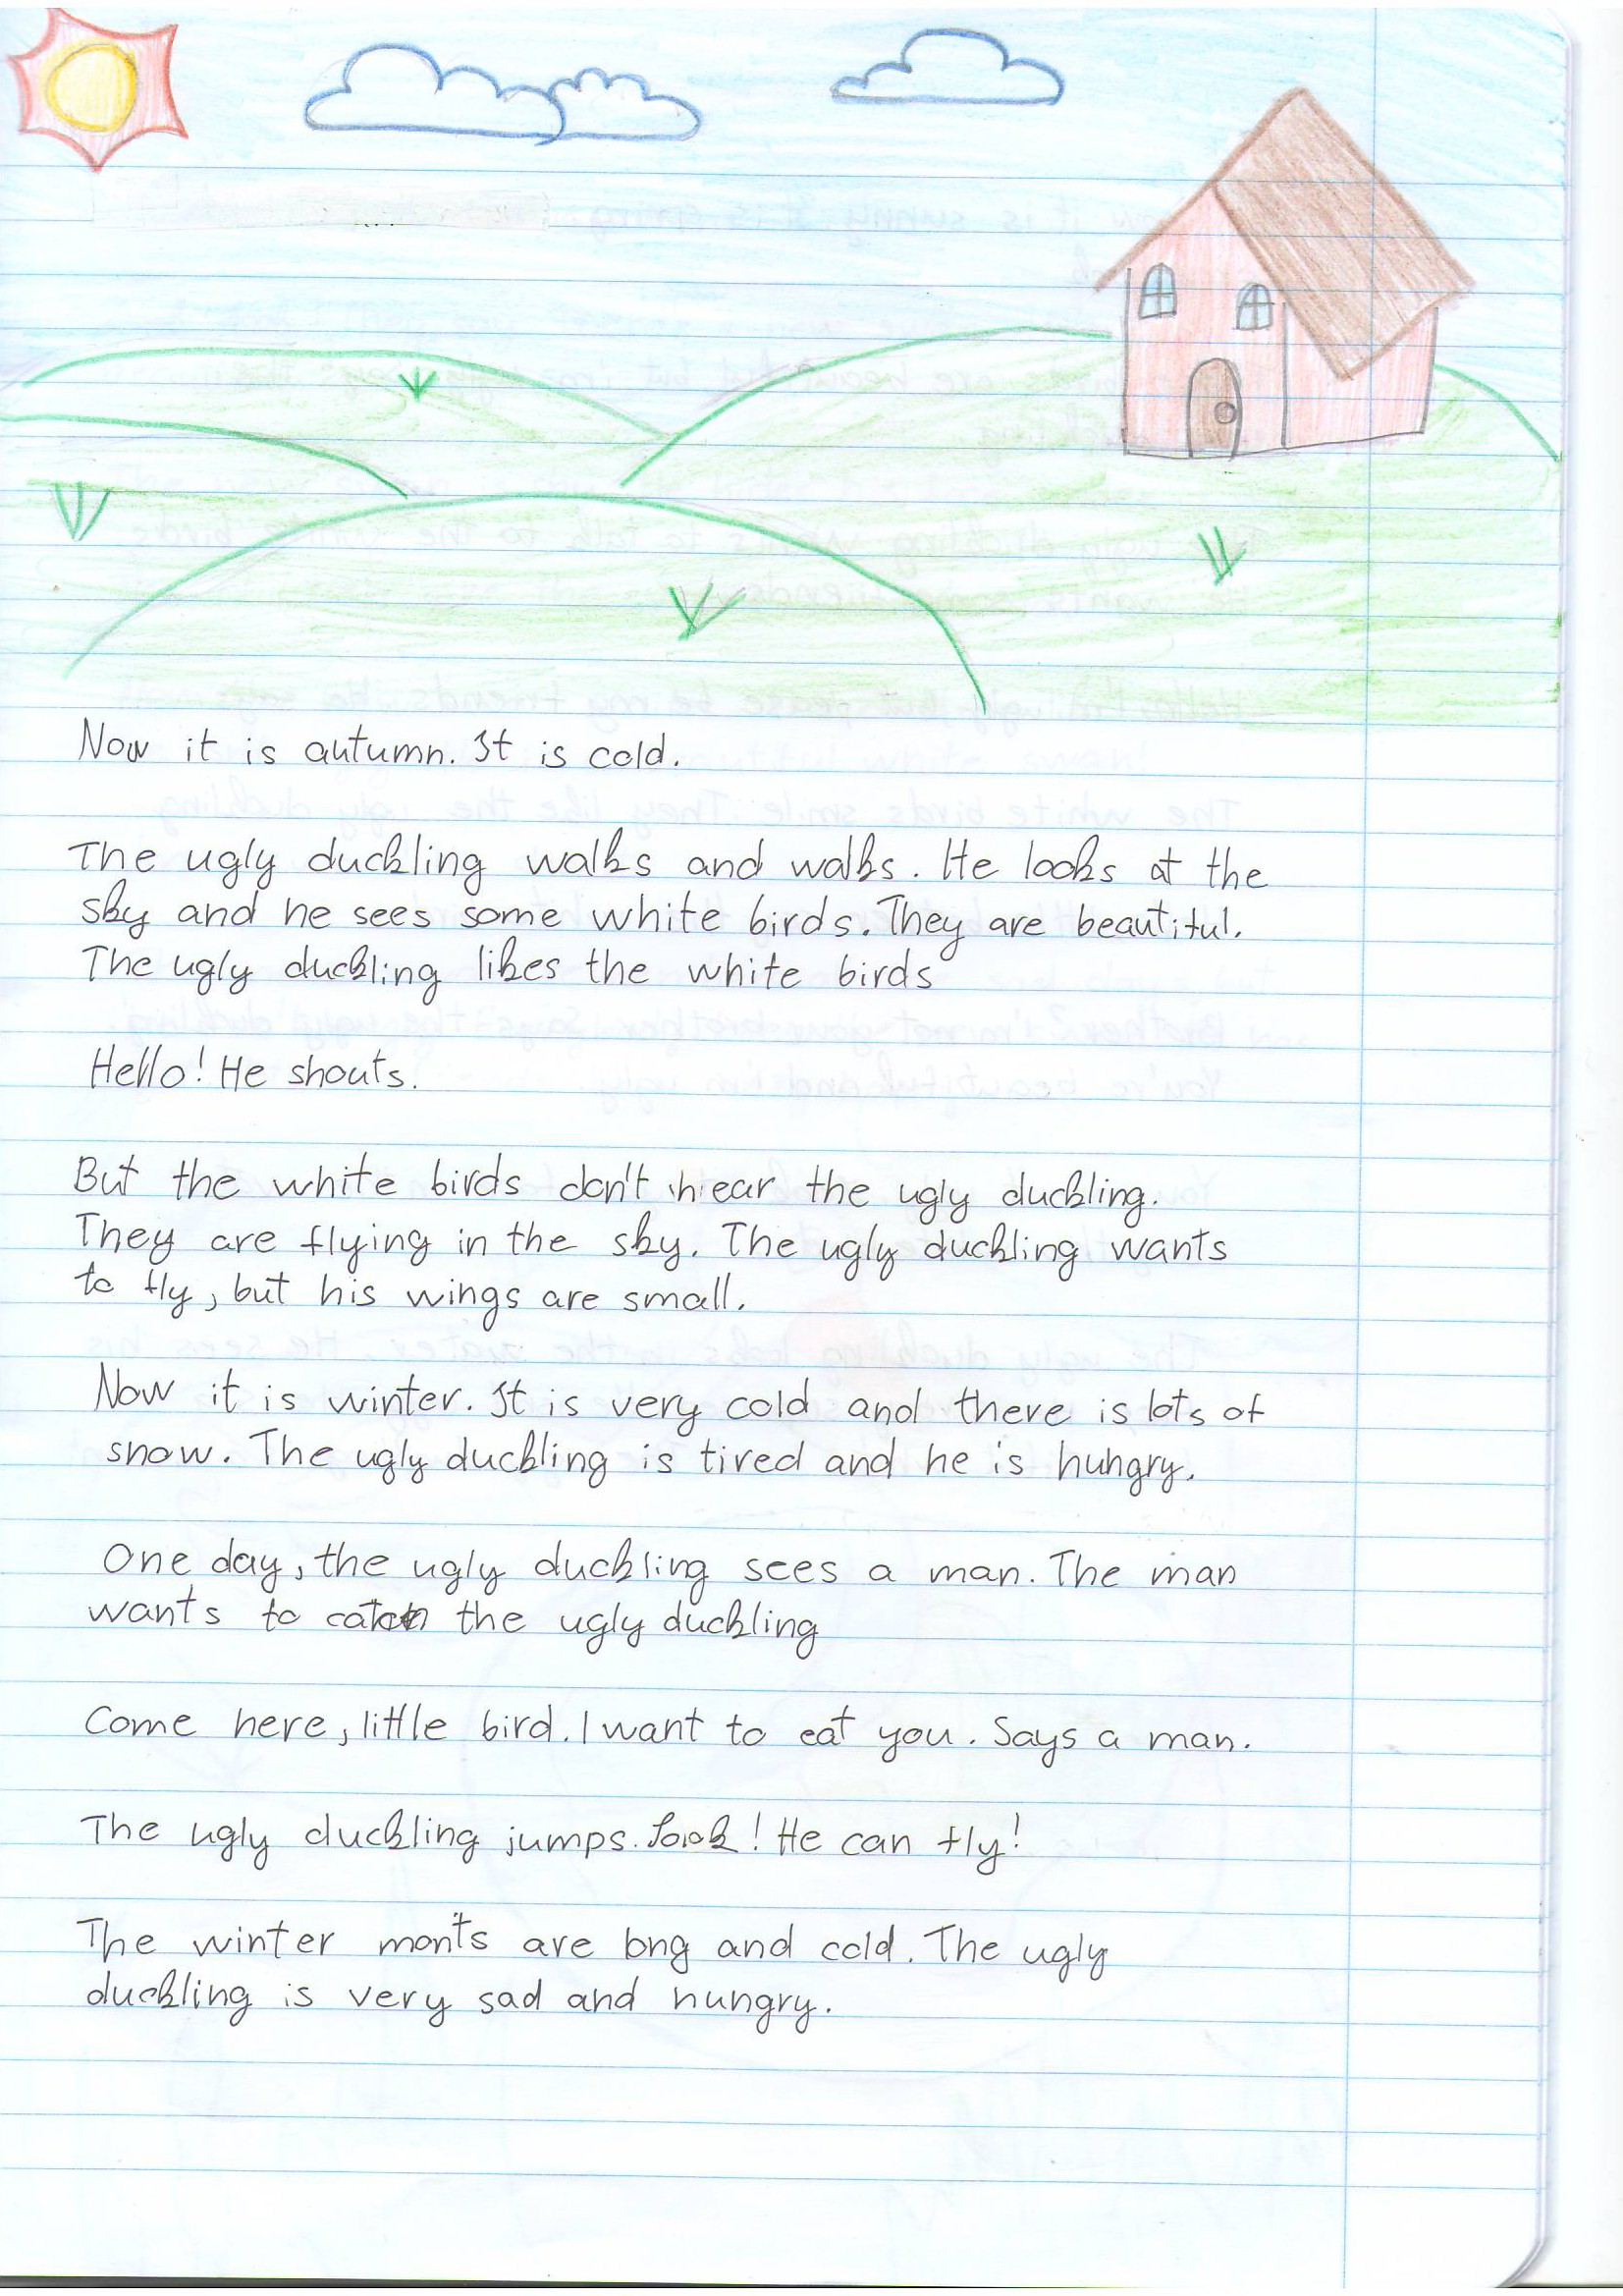 Now it is autumn. It is cold.
The ugly duckling walks and walks. He looks at the
sky and he sees some white birds. They are beautiful.
The ugly duckling likes the white birds
Hello! He shouts.
But the white birds don't hear the ugly duckling.
They are flying in the sky. The ugly duckling wants
to fly, but his wings are small.
Now it is winter. It is very cold and there is lots of
snow. The ugly duckling is tired and he is hungry.
One day, the ugly duckling sees a man. The man
wants to catch the ugly duckling
Come here, little bird. I want to eat you. Says a man.
The ugly duckling jumps. Look! He can fly!
The winter monts are long and cold. The ugly
duckling is very sad and hungry.